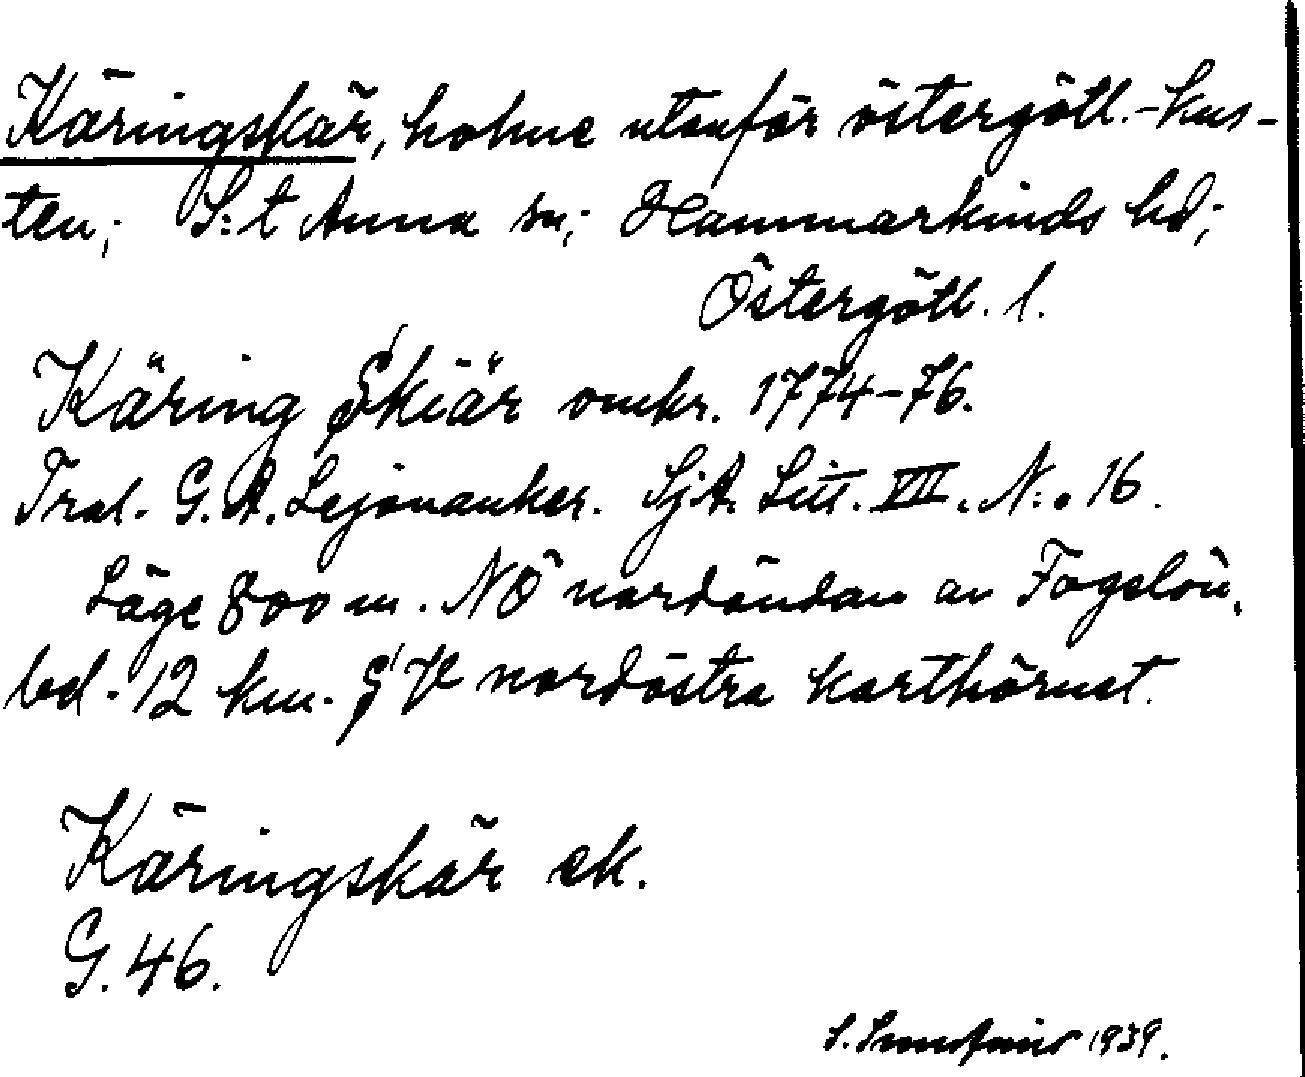 Käringskär, holme utanför östergötl.-kus-
ten; S:t Anna sn; Hammarkinds hd;
Östergötl. l.
Käring Skiär omkr. 1774-76.
Tral. G. A. Lejonanker. SjA. Litt. VIII. N:o 16.
Läge 800 m. NÖ nordändan av Fogelön.
bel. 12 km. SV nordöstra karthörnet.
Käringskär ek.
G. 46.
S. 1939.